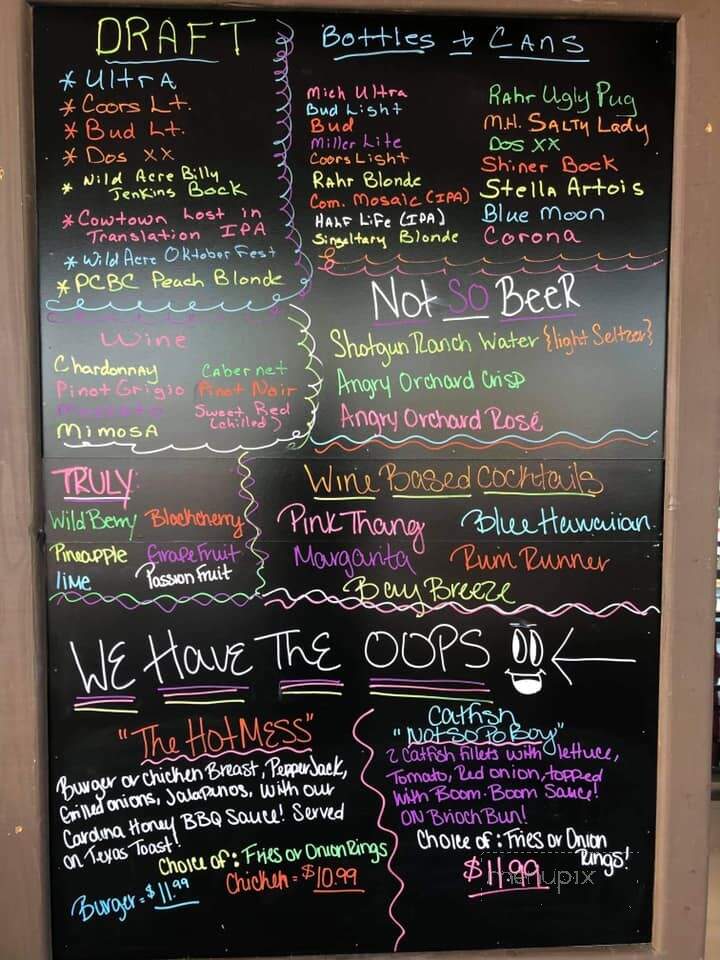 DRAFT
* Ultra
* Coors Lt.
* Bud Lt.
* Dos XX
* Wild Acre Billy
Jenkins Bock
* Cowtown Lost in
Translation IPA
* Wild Acre Oktober Fest
* PCBC Peach Blonde
Bottles + Cans
Mich Ultra
Bud Light
Bud
Miller Lite
Coors Light
Rahr Blonde
Com. Mosaic (IPA)
Half Life (IPA)
Singeltary Blonde
Rahr Ugly Pug
M.H. Salty Lady
Dos XX
Shiner Bock
Stella Artois
Blue Moon
Corona
Not So Beer
Shotgun Ranch Water {light Seltzer}
Angry Orchard Crisp
Angry Orchard Rosé
Wine
Chardonnay
Pinot Grigio
Moscato
Mimosa
Cabernet
Pinot Noir
Sweet Red
(chilled)
TRULY
Wild Berry Blackcherry
Pineapple GrapeFruit
lime Passion Fruit
Wine Based Cocktails
Pink Thang Blue Hawaiian
Margarita Rum Runner
Bay Breeze
WE HAVE THE OOPS
"The Hot Mess"
Burger or chicken Breast, PepperJack,
Grilled onions, Jalapunos, with our
Carolina Honey BBQ Sauce! Served
on Texas Toast!
Choice of: Fries or Onion Rings
Burger = $11.99 Chicken = $10.99
Catfish
"Not So Po Boy"
2 Catfish fillets with lettuce,
Tomato, Red onion, topped
with Boom-Boom Sauce!
ON Brioch Bun!
Choice of: Fries or Onion
Rings!
$11.99
menupix